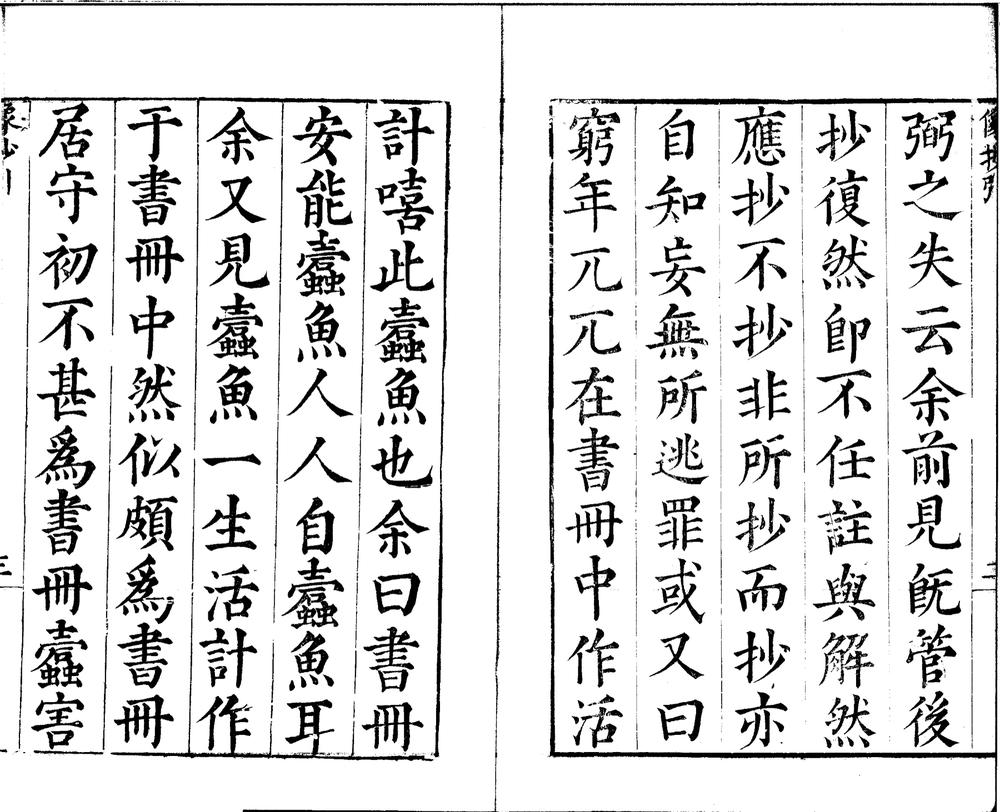 弼之失云余前見旣管後
抄復然卽不任註與解然
應抄不抄非所抄而抄亦
自知妄無所逃罪或又曰
窮年兀兀在書冊中作活
計嘻此蠹魚也余曰書冊
安能蠹魚人人自蠹魚耳
余又見蠹魚一生活計作
于書冊中然似頗爲書冊
居守初不甚爲書冊蠹害
三